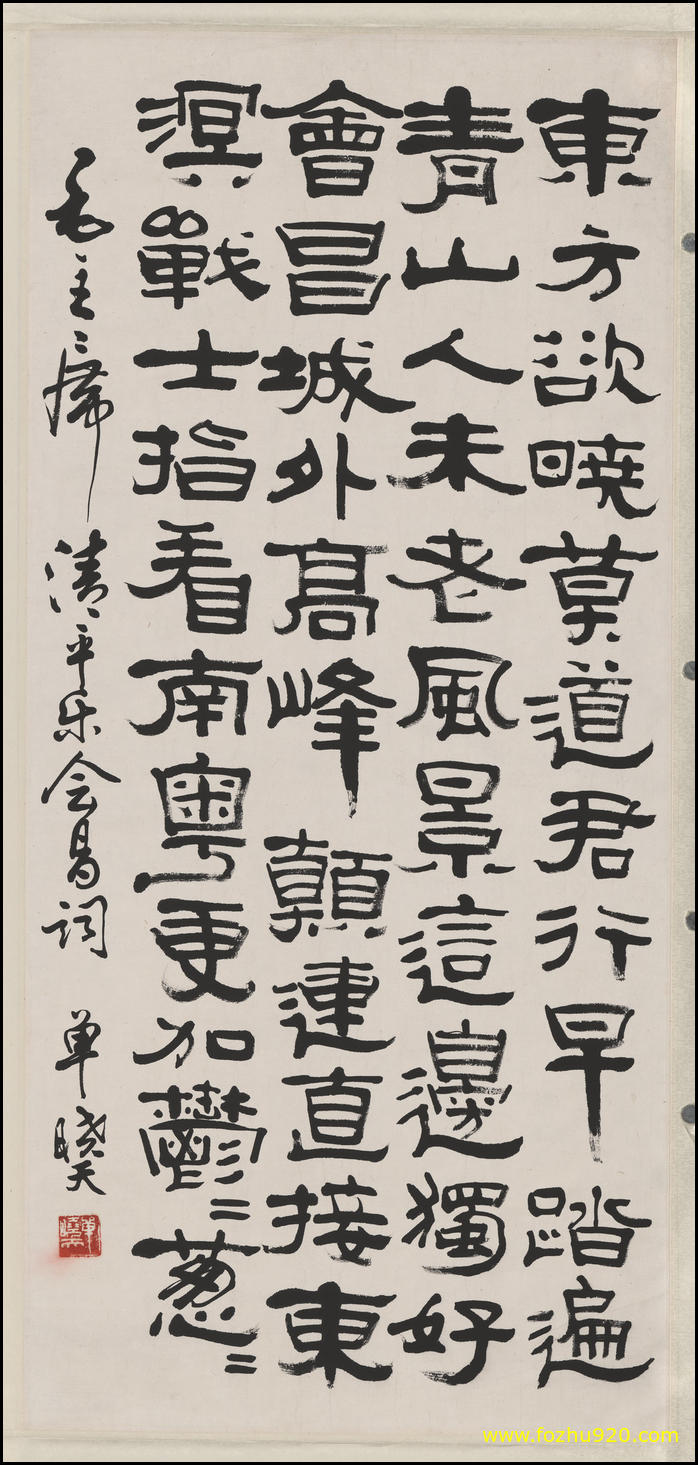 東方欲曉莫道君行早踏遍
青山人未老風景這邊獨好
會昌城外高峰顛連直接東
溟戰士指看南粵更加鬱〻葱〻
毛主席清平乐会昌词 单晓天
www.fozhu920.com